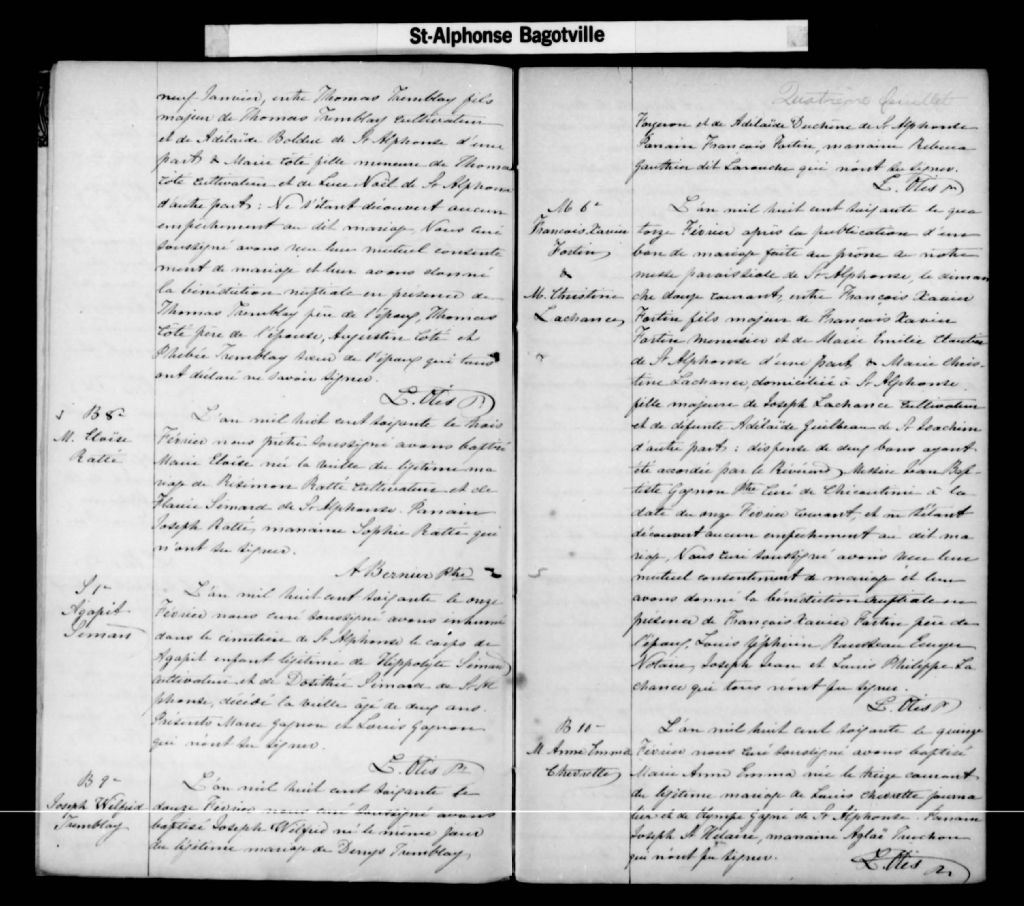 St-Alphonse Bagotville
neuf Janvier, entre Thomas Tremblay fils
majeur de Thomas Tremblay cultivateur
et de Adélaïde Bolduc de St Alphonse d'une
part & Marie Coté fille mineure de Thomas
Coté cultivateur et de Luce Noël de St Alphonse
d'autre part : Ne s'étant découvert aucun
empêchement au dit mariage, Nous curé
soussigné avons reçu leur mutuel consente
ment de mariage et leur avons donné
la bénédiction nuptiale en présence de
Thomas Tremblay père de l'époux, Thomas
Coté père de l'épouse, Augustin Coté et
Phébée Tremblay sœur de l'époux qui tous
ont déclaré ne savoir signer.
L. Otis Ptr
B 8e
M. Eloïse
Ratté
L'an mil huit cent soixante le trois
Février nous prêtre soussigné avons baptisé
Marie Eloïse née la veille du légitime ma
riage de Résimon Ratté cultivateur et de
Flavie Simard de St Alphonse. Parrain
Joseph Ratté, marraine Sophie Ratté qui
n'ont su signer.
A Bernier Ptre
S 1e
Agapit
Simard
L'an mil huit cent soixante le onze
Février nous curé soussigné avons enhumé
dans le cimetière de St Alphonse le corps de
Agapit enfant légitime de Hippolyte Simard
cultivateur et de Dosithée Simard de St Al
phonse, décédé la veille âgé de deux ans.
Présents Marc Gagnon et Louis Gagnon
qui n'ont su signer.
L. Otis Ptr
B 9e
Joseph Wilfrid
Tremblay
L'an mil huit cent soixante le
douze Février nous curé soussigné avons
baptisé Joseph Wilfrid né le même jour
du légitime mariage de Denys Tremblay
Quatrième feuillet
Forgeron et de Adélaïde Duchène de St Alphonse
Parrain François Fortin, marraine Rebecca
Gauthier dit Larouche qui n'ont su signer.
L. Otis Ptr
M 6e
François Xavier
Fortin
&
M. Christine
Lachance
L'an mil huit cent soixante le qua
torze Février après la publication d'un
ban de mariage faite au prône de notre
messe paroissiale de St Alphonse, le diman
che douze courant, entre François Xavier
Fortin fils majeur de François Xavier
Fortin menuisier et de Marie Emilie Cloutier
de St Alphonse d'une part & Marie Chris-
tine Lachance, domiciliée à St Alphonse
fille majeure de Joseph Lachance cultivateur
et de defunte Adélaïde Guilbeau de St Joachim
d'autre part : dispense de deux bans ayant
été accordée par le Révérend Messire Jean Bap-
tiste Gagnon Ptre Curé de Chicoutimi à la
date du onze Fevrier courant, et ne s'étant
découvert aucun empêchement au dit ma
riage, Nous curé soussigné avons reçu leur
mutuel consentement de mariage et leur
avons donné la bénédiction nuptiale en
présence de François Xavier Fortin père de
l'époux, Louis Zéphirin Rousseau Ecuyer
Notaire, Joseph Jean et Louis Philippe La
chance qui tous n'ont pu signer.
L. Otis Ptr
B 10e
M. Anne Emma
Chevrette
L'an mil huit cent soixante le quinze
Février nous curé soussigné avons baptisé
Marie Anne Emma née le treize courant
du légitime mariage de Louis Chevrette journa
lier et de Olympe Gagné de St Alphonse. Parrain
Joseph St Hilaire, marraine Aglaé Truchon
qui n'ont pu signer.
L. Otis Ptr